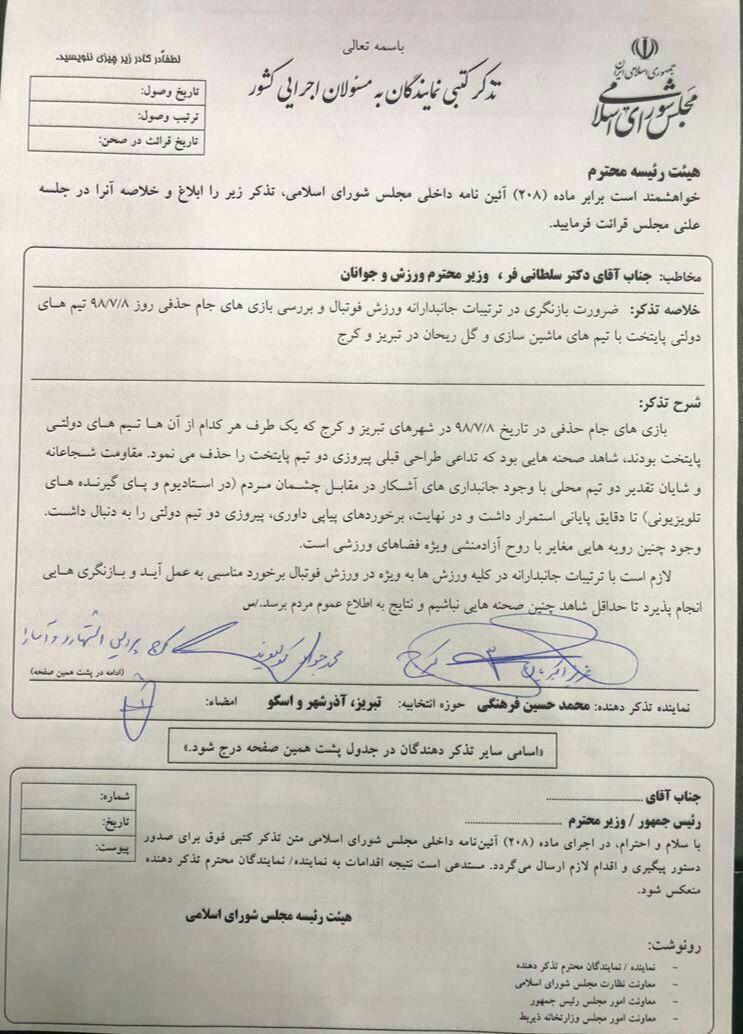 باسمه تعالی
جمهوری اسلامی ایران
مجلس شورای اسلامی
تذکر کتبی نمایندگان به مسئولان اجرایی کشور
لطفاً در کادر زیر چیزی ننویسید.
تاریخ وصول:
ترتیب وصول:
تاریخ قرائت در صحن:
هیئت رئیسه محترم
خواهشمند است برابر ماده (۲۰۸) آئین نامه داخلی مجلس شورای اسلامی، تذکر زیر را ابلاغ و خلاصه آنرا در جلسه
علنی مجلس قرائت فرمایید.
مخاطب: جناب آقای دکتر سلطانی فر ، وزیر محترم ورزش و جوانان
خلاصه تذکر: ضرورت بازنگری در ترتیبات جانبدارانه ورزش فوتبال و بررسی بازی های جام حذفی روز ۹۸/۷/۸ تیم های
دولتی پایتخت با تیم های ماشین سازی و گل ریحان در تبریز و کرج
شرح تذکر:
بازی های جام حذفی در تاریخ ۹۸/۷/۸ در شهرهای تبریز و کرج که یک طرف هر کدام از آن ها تیم های دولتی
پایتخت بودند، شاهد صحنه هایی بود که تداعی طراحی قبلی پیروزی دو تیم پایتخت را حذف می نمود. مقاومت شجاعانه
و شایان تقدیر دو تیم محلی با وجود جانبداری های آشکار در مقابل چشمان مردم (در استادیوم و پای گیرنده های
تلویزیونی) تا دقایق پایانی استمرار داشت و در نهایت، برخوردهای پیاپی داوری، پیروزی دو تیم دولتی را به دنبال داشت.
وجود چنین رویه هایی مغایر با روح آزادمنشی ویژه فضاهای ورزشی است.
لازم است با ترتیبات جانبدارانه در کلیه ورزش ها به ویژه در ورزش فوتبال برخورد مناسبی به عمل آید و بازنگری هایی
انجام پذیرد تا حداقل شاهد چنین صحنه هایی نباشیم و نتایج به اطلاع عموم مردم برسد./س
کرج
محمدجواد کولیوند کرج فردیس اشتهارد و آسارا
(ادامه در پشت همین صفحه)
نماینده تذکر دهنده: محمد حسین فرهنگی حوزه انتخابیه: تبریز، آذرشهر و اسکو امضاء:
«اسامی سایر تذکر دهندگان در جدول پشت همین صفحه درج شود.»
شماره:
تاریخ:
پیوست:
جناب آقای ........................
رئیس جمهور / وزیر محترم ........................
با سلام و احترام، در اجرای ماده (۲۰۸) آئین‌نامه داخلی مجلس شورای اسلامی متن تذکر کتبی فوق برای صدور
دستور پیگیری و اقدام لازم ارسال می‌گردد. مستدعی است نتیجه اقدامات به نماینده/ نمایندگان محترم تذکر دهنده
منعکس شود.
هیئت رئیسه مجلس شورای اسلامی
رونوشت:
- نماینده / نمایندگان محترم تذکر دهنده
- معاونت نظارت مجلس شورای اسلامی
- معاونت امور مجلس رئیس جمهور
- معاونت امور مجلس وزارتخانه ذیربط